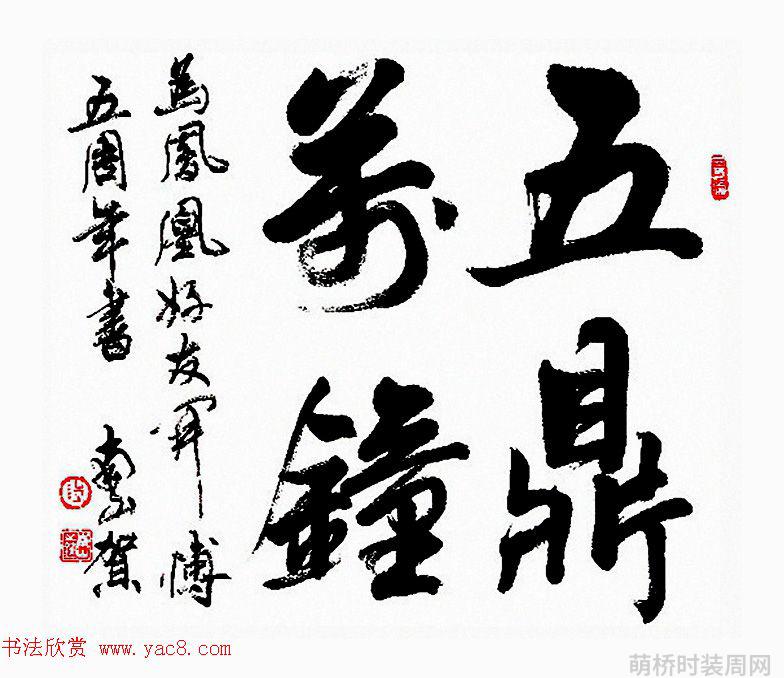 五鼎
萬鐘
為鳳凰好友開博
五周年書 南山賀
书法欣赏 www.yac8.com
萌桥时装周网